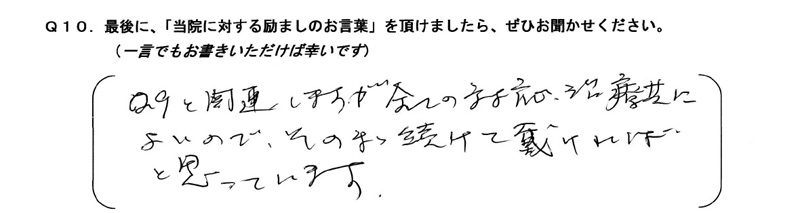 Q10. 最後に、「当院に対する励ましのお言葉」を頂けましたら、ぜひお聞かせください。
（一言でもお書きいただけば幸いです）
Q9と関連しますが全ての対応、治療共に
よいので、そのまゝ続けて戴ければ
と思っています.